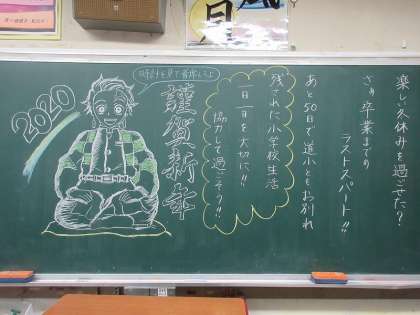 楽しい冬休みを過ごせた?
さぁ卒業までの
ラストスパート!!
あと50日で道小ともお別れ
残された小学校生活
一日一日を大切に!!
協力して過ごそう!!
謹賀新年
2020